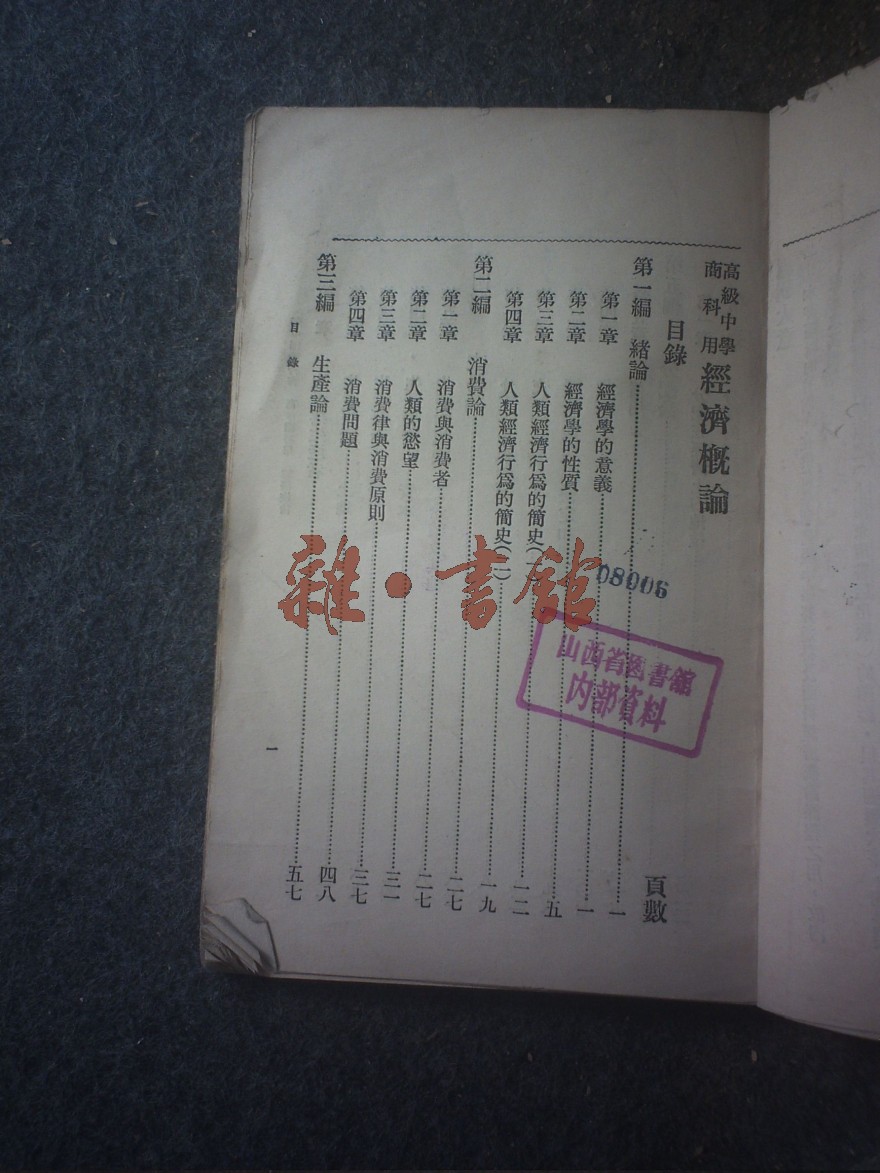 高級中學
商科用
經濟概論
目錄 頁數
第一編 緒論……一
第一章 經濟學的意義……一
第二章 經濟學的性質……五
第三章 人類經濟行爲的簡史(一)……一二
第四章 人類經濟行爲的簡史(二)……一九
第二編 消費論……二七
第一章 消費與消費者……二七
第二章 人類的慾望……三一
第三章 消費律與消費原則……三七
第四章 消費問題……四八
第三編 生產論……五七
目錄
一
08006
山西省图書舘
内部資料
雜·書館